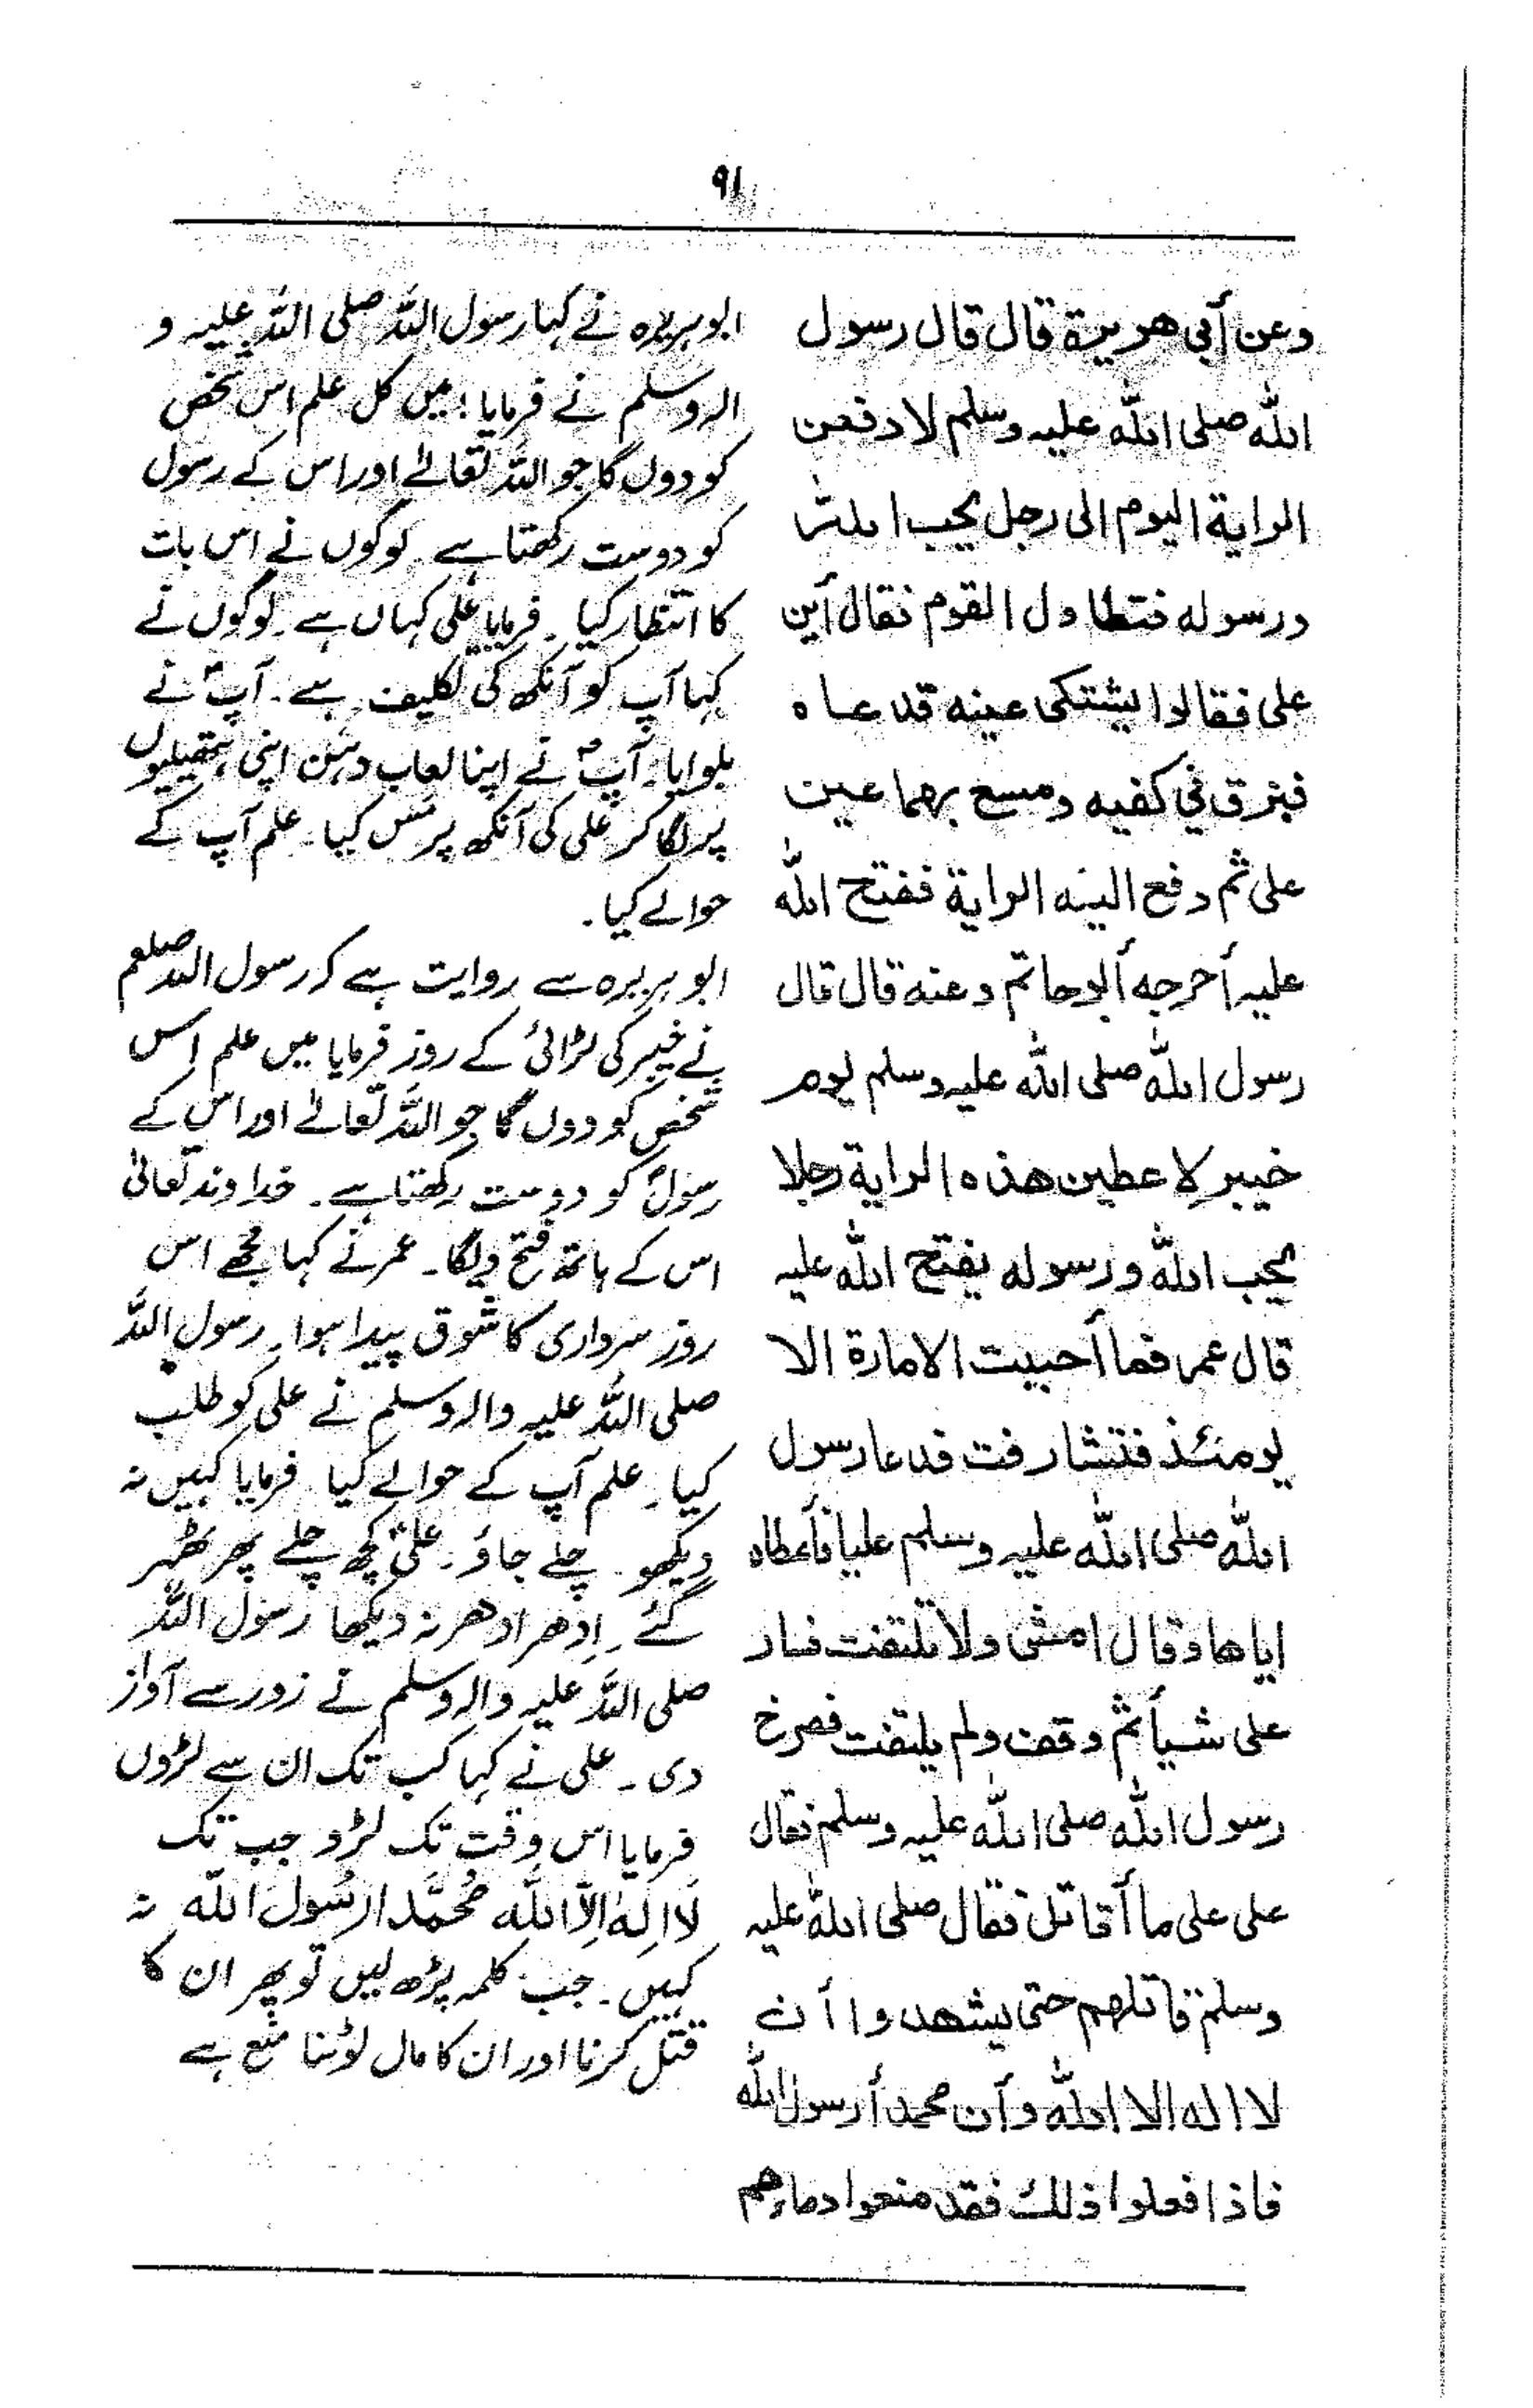 ۹۱
وعن أبي هريرة قال قال رسول
الله صلى الله عليه وسلم لادفعن
الراية اليوم الى رجل يحب الله
ورسوله فتطاول القوم فقال أين
على فقالوا يشتكى عينه فدعاه
فبزق في كفيه ومسح بهما عين
على ثم دفع اليه الراية ففتح الله
عليه أخرجه أبوحاتم وعنه قال قال
رسول الله صلى الله عليه وسلم يوم
خيبر لاعطين هذه الراية رجلا
يحب الله ورسوله يفتح الله عليه
قال عمر فما أحببت الامارة الا
يومئذ فتشارفت فدعا رسول
الله صلى الله عليه وسلم عليا فأعطاه
اياها وقال امشى ولا تلتفت فسار
على شيأ ثم وقف ولم يلتفت فصرخ
رسول الله صلى الله عليه وسلم فقال
على على ما أقاتل فقال صلى الله عليه
وسلم قاتلهم حتى يشهدوا أن
لا اله الا الله وأن محمدأ رسول الله
فاذا فعلوا ذلك فقد منعوا دماءهم
ابوہریرہ نے کہا رسول اللہ صلی اللہ علیہ و
الہ وسلم نے فرمایا؛ میں کل علم اس شخص
کو دوں گا جو اللہ تعالےٰ اور اس کے رسول
کو دوست رکھتا ہے۔ لوگوں نے اس بات
کا انتظار کیا۔ فرمایا علی کہاں ہے۔ لوگوں نے
کہا آپ کو آنکھ کی تکلیف ہے۔ آپؐ نے
بلوایا۔ آپؐ نے اپنا لعاب دہن اپنی ہتھیلیوں
پر لگا کر علی کی آنکھ پر مس کیا۔ علم آپ کے
حوالے کیا۔
ابو ہریرہ سے روایت ہے کہ رسول اللہ صلعم
نے خیبر کی لڑائی کے روز فرمایا میں علم اس
شخص کو دوں گا جو اللہ تعالےٰ اور اس کے
رسولؐ کو دوست رکھتا ہے۔ خداوند تعالیٰ
اس کے ہاتھ فتح دیگا۔ عمر نے کہا مجھے اس
روز سرداری کا شوق پیدا ہوا۔ رسول اللہ
صلی اللہ علیہ والہ وسلم نے علی کو طلب
کیا۔ علم آپ کے حوالے کیا۔ فرمایا کہیں نہ
دیکھو۔ چلے جاؤ۔ علیؑ کچھ چلے پھر ٹھہر
گئے۔ اِدھر ادھر نہ دیکھا رسول اللہ
صلی اللہ علیہ والہ وسلم نے زور سے آواز
دی۔ علی نے کہا کب تک ان سے لڑوں
فرمایا اس وقت تک لڑو جب تک
لَا اِلٰہَ اِلَّا اللہ مُحَمَّد ارسُول اللہ نہ
کہیں۔ جب کلمہ پڑھ لیں تو پھر ان کا
قتل کرنا اور ان کا مال لوٹنا منع ہے